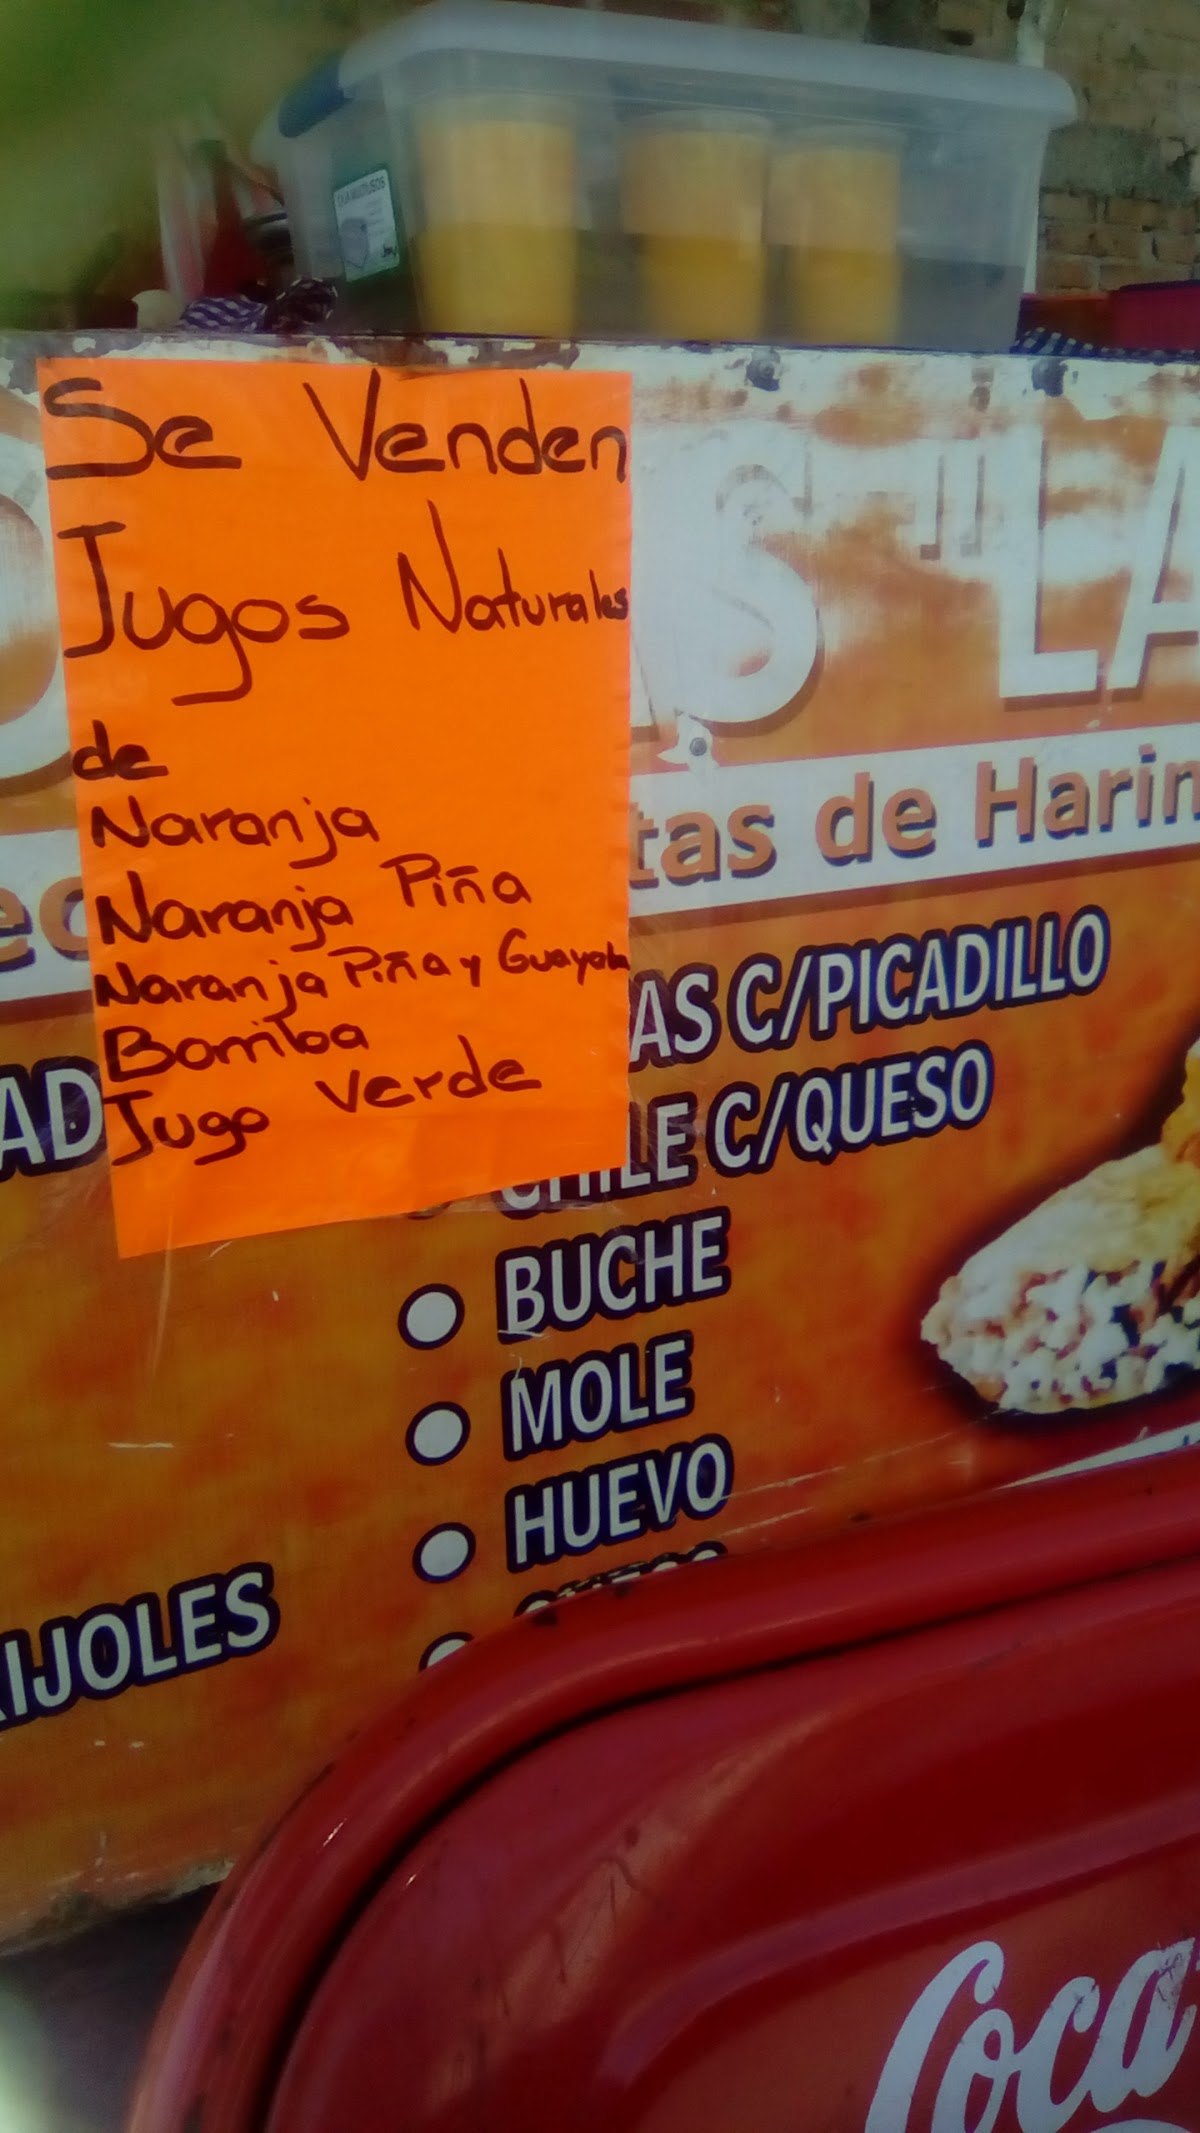 Se Venden
Jugos Naturales
de
Naranja
Naranja Piña
Naranja Piña y Guayaba
Bomba
Jugo Verde
S "LA
tas de Harin
AS C/PICADILLO
CHILE C/QUESO
BUCHE
MOLE
HUEVO
AD
IJOLES
Coca